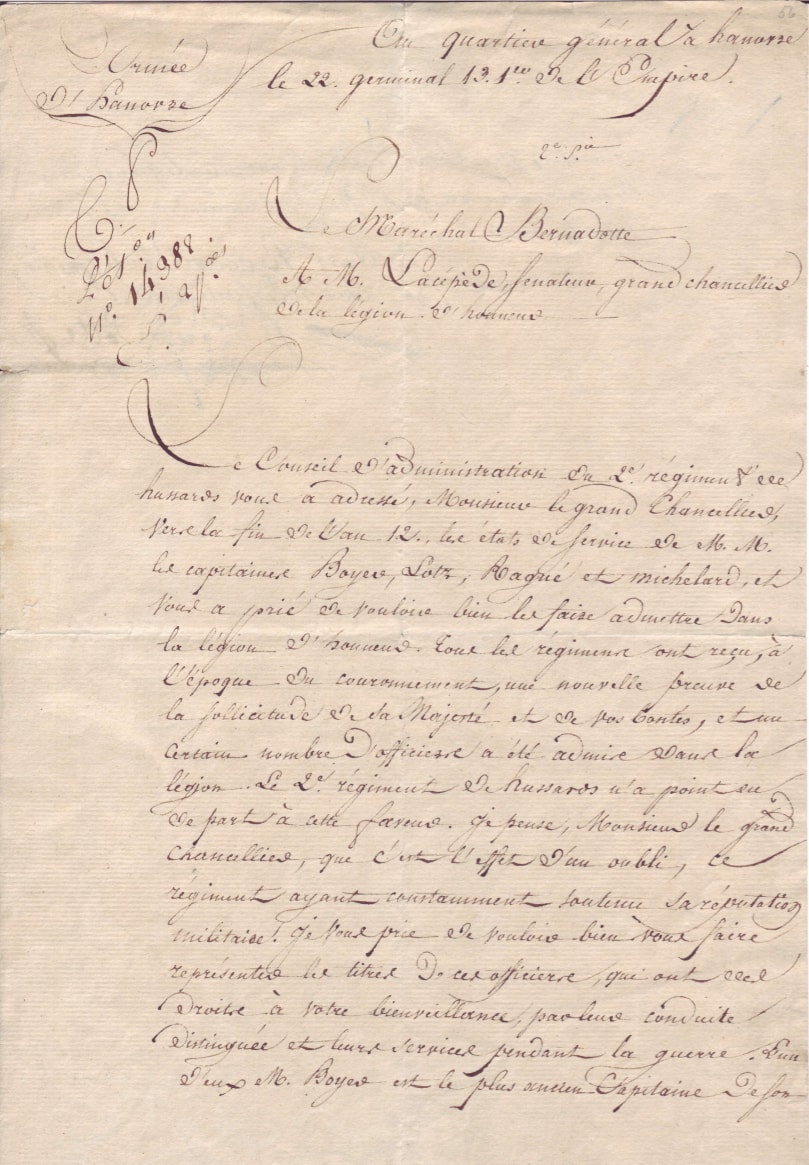 56
Au quartier général à hanovre
le 22. germinal 13. 1er. de l'Empire.
Armée
d'hanovre
Le Maréchal Bernadotte
A M. Lacépède, Senateur, grand chancellier
de la légion d'honneur
No. 14388.
Le Conseil d'administration du 2e. régiment de
hussards vous a adressé, Monsieur le grand Chancellier,
vers la fin de l'an 12., les états de service de M. M.
les capitaines Boyer, Lotz, Ragué et michelard, et
vous a prié de vouloir bien les faire admettre dans
la légion d'honneur. Tous les régimens ont reçu, à
l'époque du couronnement, une nouvelle preuve de
la sollicitude de sa Majesté et de vos bontés, et un
certain nombre d'officiers a été admis dans la
légion. Le 2e. régiment de hussards n'a point eu
de part à cette faveur. Je pense, Monsieur le grand
chancellier, que c'est l'effet d'un oubli, ce
régiment ayant constamment soutenu sa réputation
militaire! Je vous prie de vouloir bien vous faire
représenter les titres de ces officiers, qui ont des
droits à votre bienveillance, par leur conduite
distinguée et leurs services pendant la guerre. L'un
d'eux M. Boyer est le plus ancien Capitaine de son